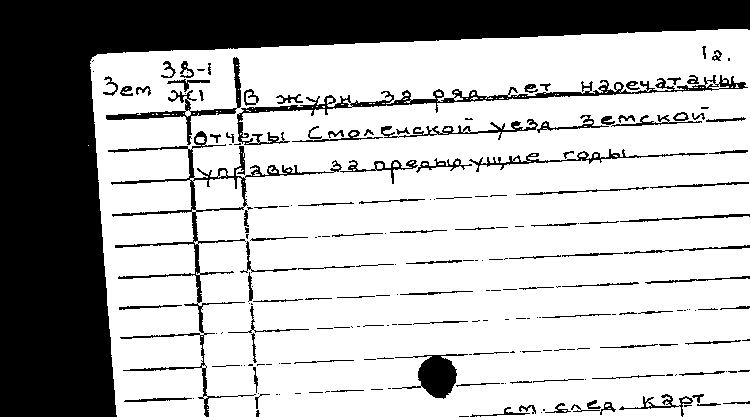 12.
Зем 38-1
Ж1
В журн. за ряд лет напечатаны
отчеты Смоленской уезд земской
управы за предыдущие годы.
см. след. карт